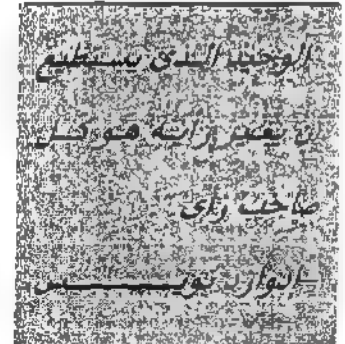 الوحيد الذى يستطيع
ان يغير رأيه هو كل
صاحب رأى
ادوارد لويس